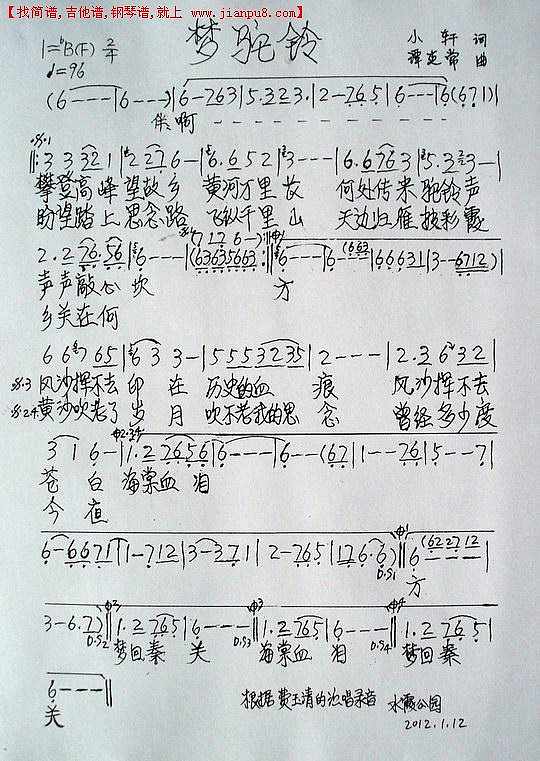 【找简谱,吉他谱,钢琴谱,就上 www.jianpu8.com】
梦驼铃
小轩 词
谭建常 曲
1=ᵇB(F) 2/4
♩=96
(6---|6---)|6-763|5.323.|2--765|6---|6(671)|
伴啊
3 3 321|2 276-|6.652|3---|6.6763|5.323-|
攀登高峰 望故乡 黄河万里长 何处传来 驼铃声
盼望踏上 思念路 飞纵千里山 天边归雁 披彩霞
2.276.56|6---|(63635663.:‖6---|6---|66631|3--6712)|
声声敲心坎 方
乡关在何
6 6 65|6 3 3-|5553235|2----|2.3 6 32|
风沙挥不去 印在 历史的血 痕 风沙挥不去
黄沙吹老了 岁月 吹不老我的思 念 曾经多少度
3 1 6-|1.27656|6---|6--(67)|1--76|5---7|
苍白 海棠血泪
今夜
6-6671|1-712|3-371|2-765|176.6)‖6---|
D.S1
方
3-6.7)‖1.2765|6---‖1.2765|6---‖1.2765|
D.S2 D.S3 D.S4
梦回秦 关 海棠血 泪 梦回秦
6---‖
关
根据费玉清的演唱录音 水霞公园
2012.1.12